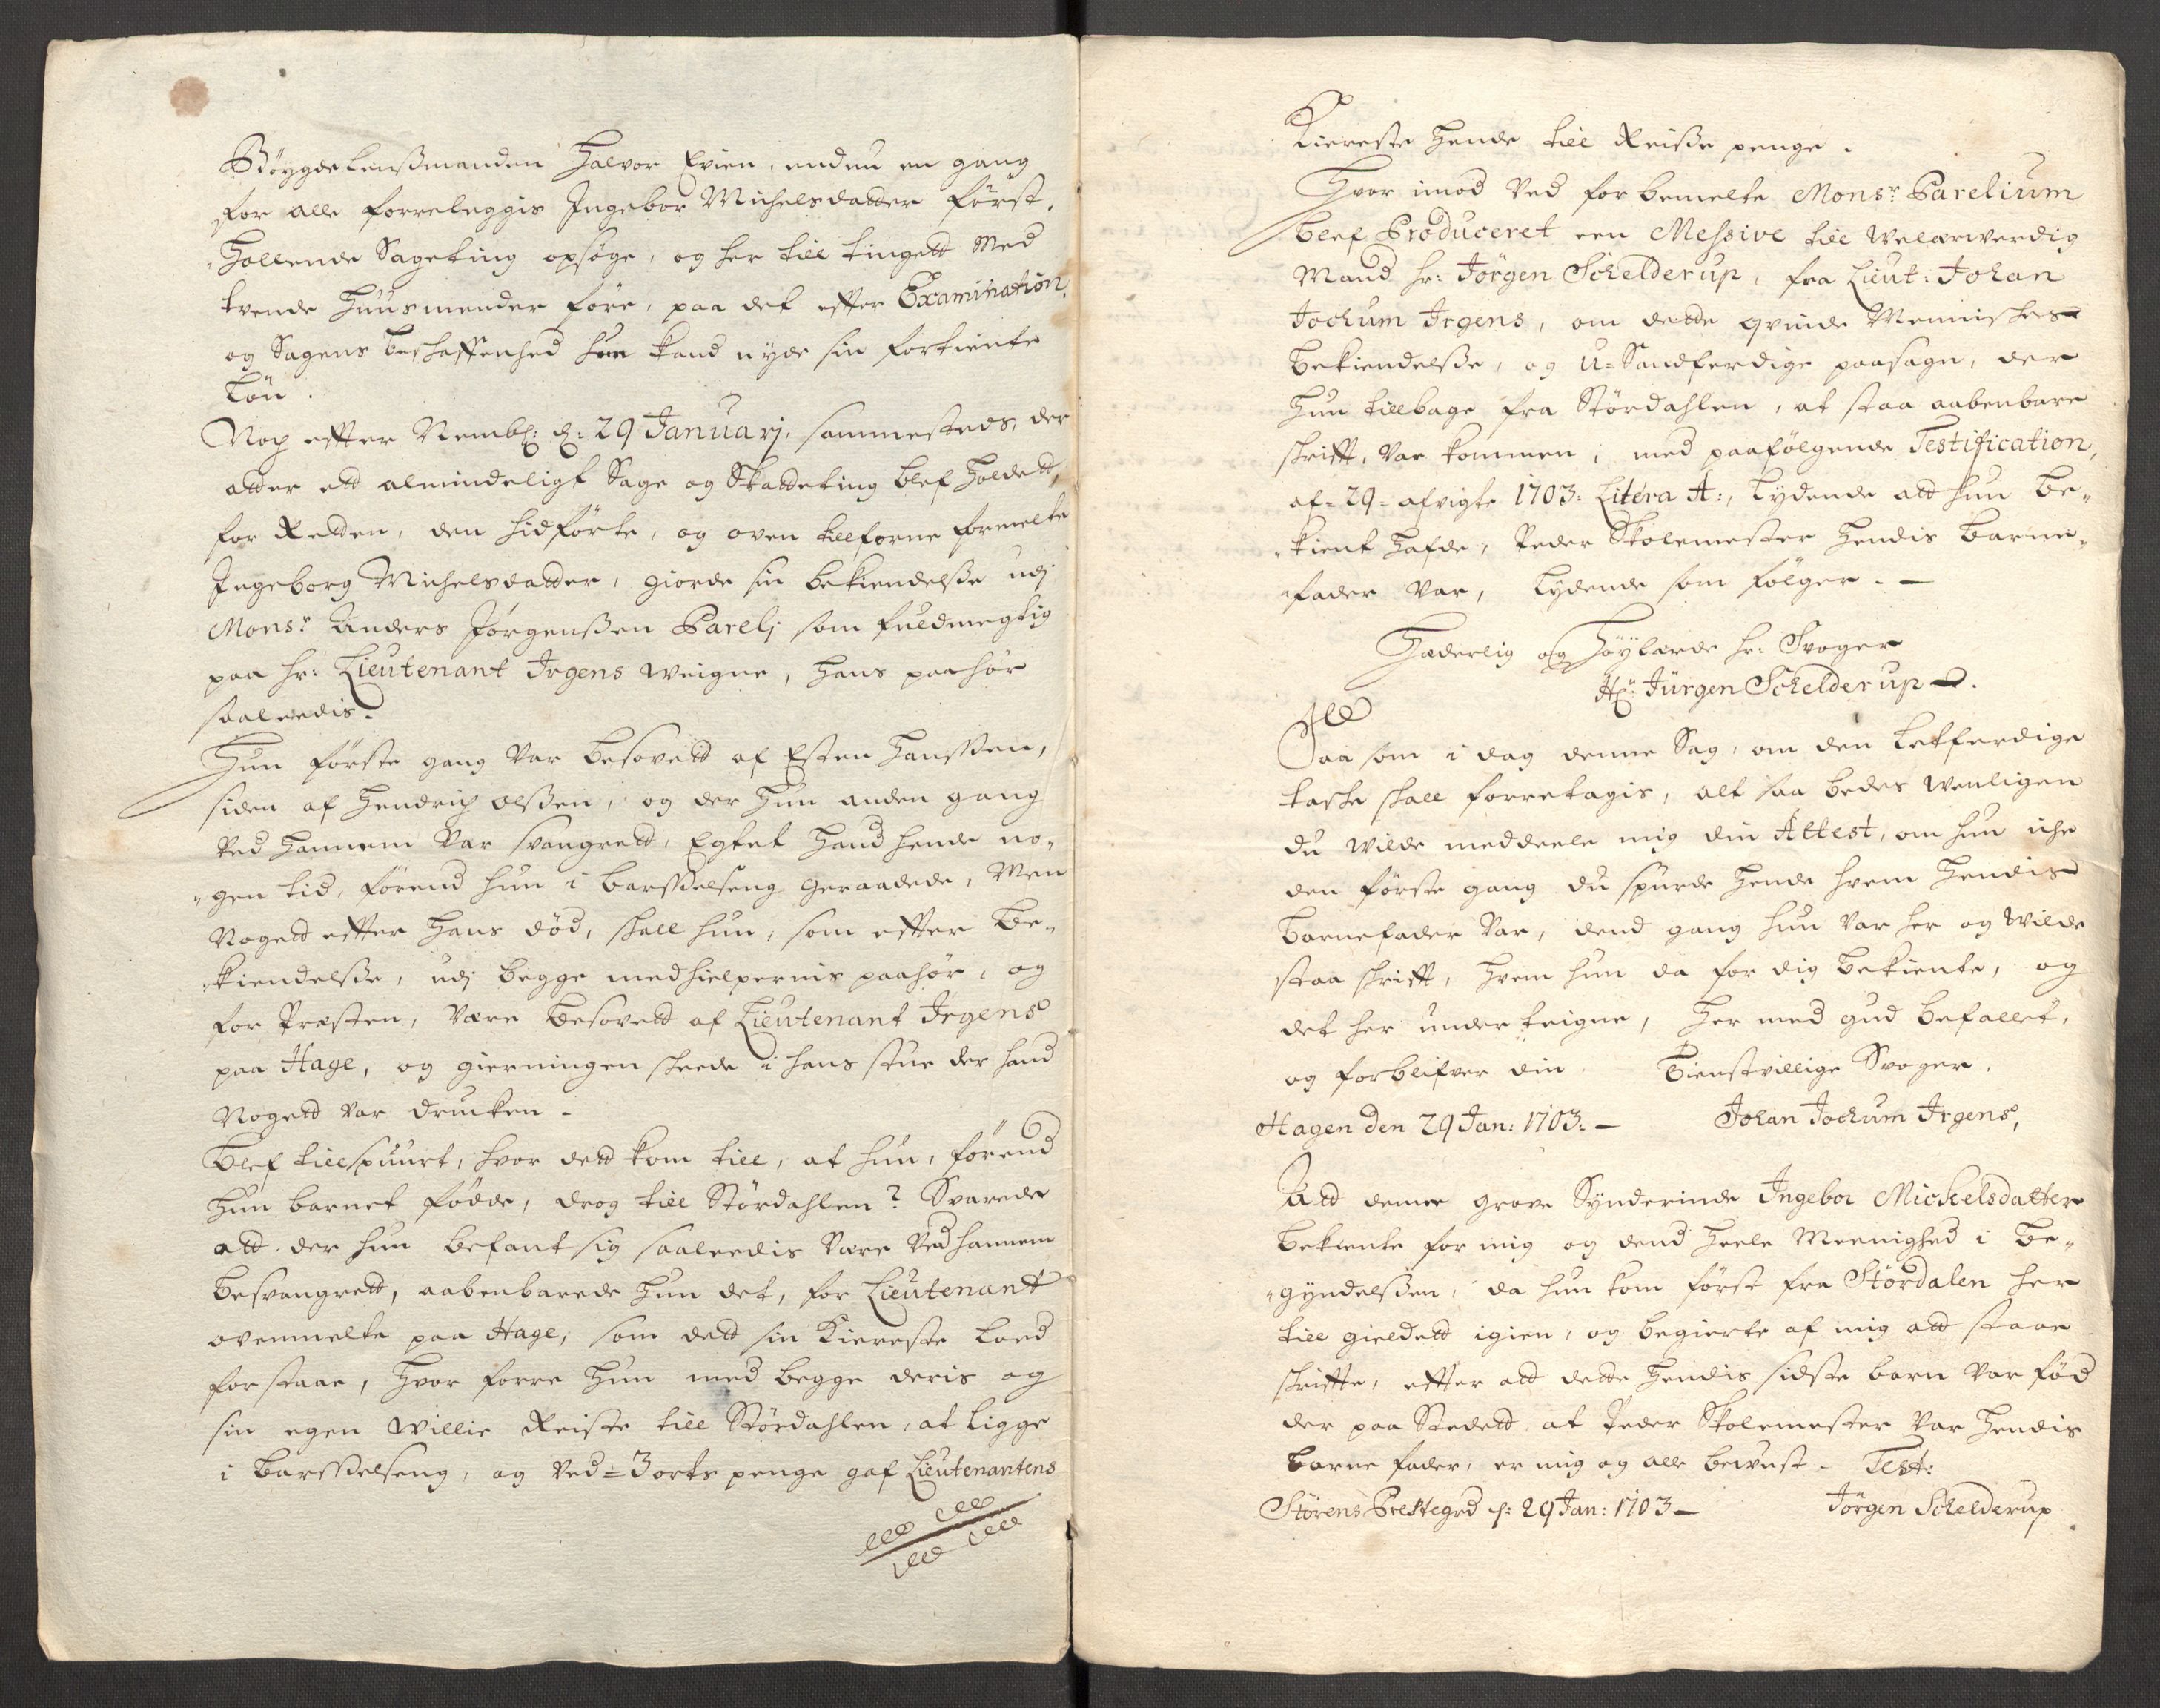 Böygdelenßmanden Halvor Evien, endnu en gang
for alle forreleggis Ingebor Michelsdatter först.
hollende Sageting opsöge, og her till tingett Med
tvende Huusmender före, paa det effter Examination
og Sagens beschaffenhed hun kand nyde sin fortiente
Lön.
Noch effter Nembl: d: 29 Januarj, sammesteds, der
atter ett almindeligt Sage og Skatteting blef holdett,
for Retten, den hidförte, og oven tillforne formelte
Ingeborg Michelsdatter, giorde sin bekiendelße udj
Monsr Anders Jörgenßen Parelj som fuldmegtig
paa hr: Lieutenant Irgens weigne, hans paahör
saaleedis.
Hun förste gang var besovett af Esten Hanssen,
siden af Hendrich olßen, og der Hun anden gang
ved Hannem var svangrett, Egtet Hand hende no-
gen tid, förend hun i barsselseng geraadede, Men
Nogett effter Hans död, skall hun, som effter be-
kiendelße, udj begge medhielpernis paahör, og
for Præsten, være besovett af Lieutenant Irgens
paa Hage, og gierningen skeede i hans stue der hand
Nogett var drucken.
blef tillspuurt, hvor dett kom till, at hun, förend
Hun barnet födde, drog till Stördahlen? Svarede
att der hun befant sig saaleedis være ved hannem
besvangrett, aabenbarede Hun det, for Lieutenant
ovenmelte paa Hage, som dett sin Kiereste loed
forstaae, Hvor forre Hun med begge deris og
sin egen Willie Reiste till Stördahlen, at ligge
i barsselseng, og Ved = 3 orts penge gaf Lieutenantens
Kiereste Hende till Reiße penge.
Hvor imod Ved for bemelte Monsr: Parelium
blef Produceret een Messive till Welærwerdig
Mand hr: Jörgen Schelderup, fra Lieut: Johan
Jochum Irgens, om dette qvinde Menniskes
bekiendelße, og U-Sandferdige paasagn, der
Hun tillbage fra Stördahlen, at staa aabenbare
skrifft, var kommen, med paafölgende Testification,
af = 29 = afvigte 1703: Litéra A:, Lydende att hun be-
kient Hafde, Peder Skolemester Hendis barne-
fader var, Lydende som fölger. -
Hæderlig og Höylærde hr: Svoger
Hr: Jürgen Schelderup.
Saa som i dag denne Sag, om den letferdige
taske skall forretagis, alt saa bedes wenligen
du wilde meddeele mig din Attest, om hun iche
den förste gang du spurde Hende hvem Hendis
barnefader var, dend gang hun var her og wilde
staa skrifft, hvem hun da for dig bekiente, og
det her under teigne, Her med gud befallet,
og forblifver din Tienstvillige Svoger,
Hagen den 29 Jan: 1703. - Johan Jochum Irgens,
Att denne grove Synderinde Ingebor Michelsdatter
bekiente for mig og dend Heele Meenighed i be-
gyndelßen, da hun kom först fra Stördalen her
till gieldett igien, og begierte af mig att staae
skriffte, effter att dette Hendis sidste barn var föd
der paa Stedett at Peder Skolemester var Hendis
barne fader, er mig og alle bewust. Test:
Störens Prestegrd d: 29 Jan: 1703 - Jörgen Schelderup